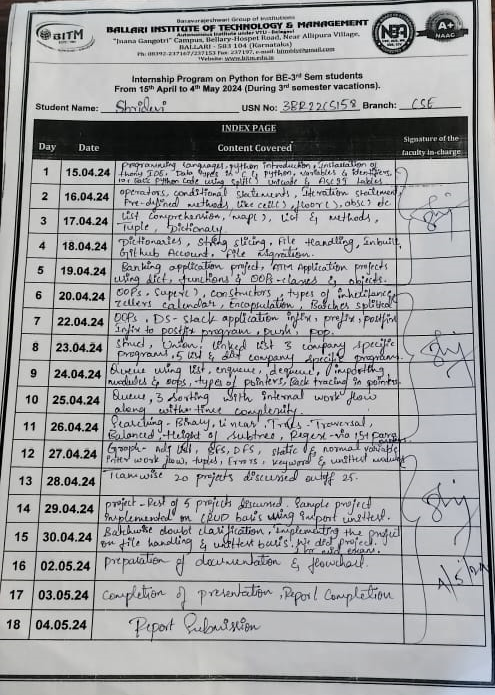 Basavarajeswari Group of Institutions
BALLARI INSTITUTE OF TECHNOLOGY & MANAGEMENT
Autonomous Institute under VTU - Belagavi
"Jnana Gangotri" Campus, Bellary-Hospet Road, Near Allipura Village,
BALLARI - 583 104 (Karnataka)
Website: www.bitm.edu.in
BITM
NBA
A+
NAAC
Internship Program on Python for BE-3rd Sem students
From 15th April to 4th May 2024 (During 3rd semester vacations).
Student Name: Shridevi USN No: 3BR22CS158 Branch: CSE
INDEX PAGE
Day Date Content Covered Signature of the faculty in-charge
1 15.04.24 programming languages, python introduction, Installation of
IDE, Data types in C & python, variables & identifiers,
Basic Python Code using split() unicode & ASCII tables
2 16.04.24 operators, conditional statements, Iteration statement,
Pre-defined methods like ceil(), floor(), abs() etc
3 17.04.24 List Comprehension, map(), List & methods,
Tuple, Dictionary.
4 18.04.24 Dictionaries, String slicing, File Handling, Inbuilt,
Github Account, File migration.
5 19.04.24 Banking application project, ATM Application projects
using dict, functions & OOPs-classes & objects.
6 20.04.24 OOPs, Super(), constructors, types of inheritance
zellers calendar, encapsulation, Batches splitted
7 22.04.24 OOPs, DS-stack application infix, prefix, postfix
Infix to postfix program, push, pop.
8 23.04.24 Struct, Union, Linked list 3 company specific
programs, 5 list & dict company specific programs.
9 24.04.24 Queue using list, enqueue, dequeue, importing
modules & oops, types of pointers, Back tracing in pointers
10 25.04.24 Queue, 3 Sorting with internal work flow
along with time complexity.
11 26.04.24 Searching-Binary, Linear, Trees-Traversal,
Balanced, Height of subtree, Regex-via
12 27.04.24 Graph- Adj list, BFS, DFS, static & normal variable
work flow, tuples, Errors, Keyword & unittest module
13 28.04.24 Teamwise 20 projects discussed out of 25.
14 29.04.24 project-Rest of 5 projects discussed. Sample project
implemented on CRUD basis using import unittest.
15 30.04.24 Batchwise doubt clarification, Implementing the project
on file handling & unittest basis. No project
16 02.05.24 preparation of documentation & flowchart.
17 03.05.24 completion of presentation, Report Completion
18 04.05.24 Report Submission